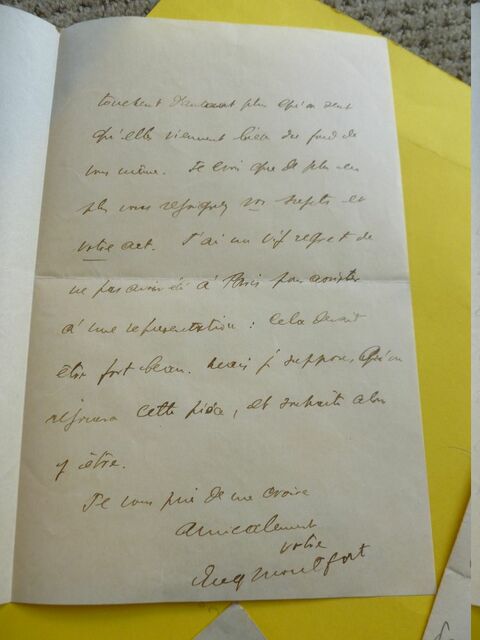 touchent d'autant plus qu'on sent
qu'elles viennent bien du fond de
vous même. Je vois que de plus en
plus vous vos sujets et
votre art. J'ai un vif regret de
ne pas avoir été à Paris pour assister
à une représentation : cela devait
être fort beau. Mais je suppose qu'on
rejouera cette pièce, et souhaite alors
y être.
Je vous prie de me croire
amicalement
votre
Eug Montfort